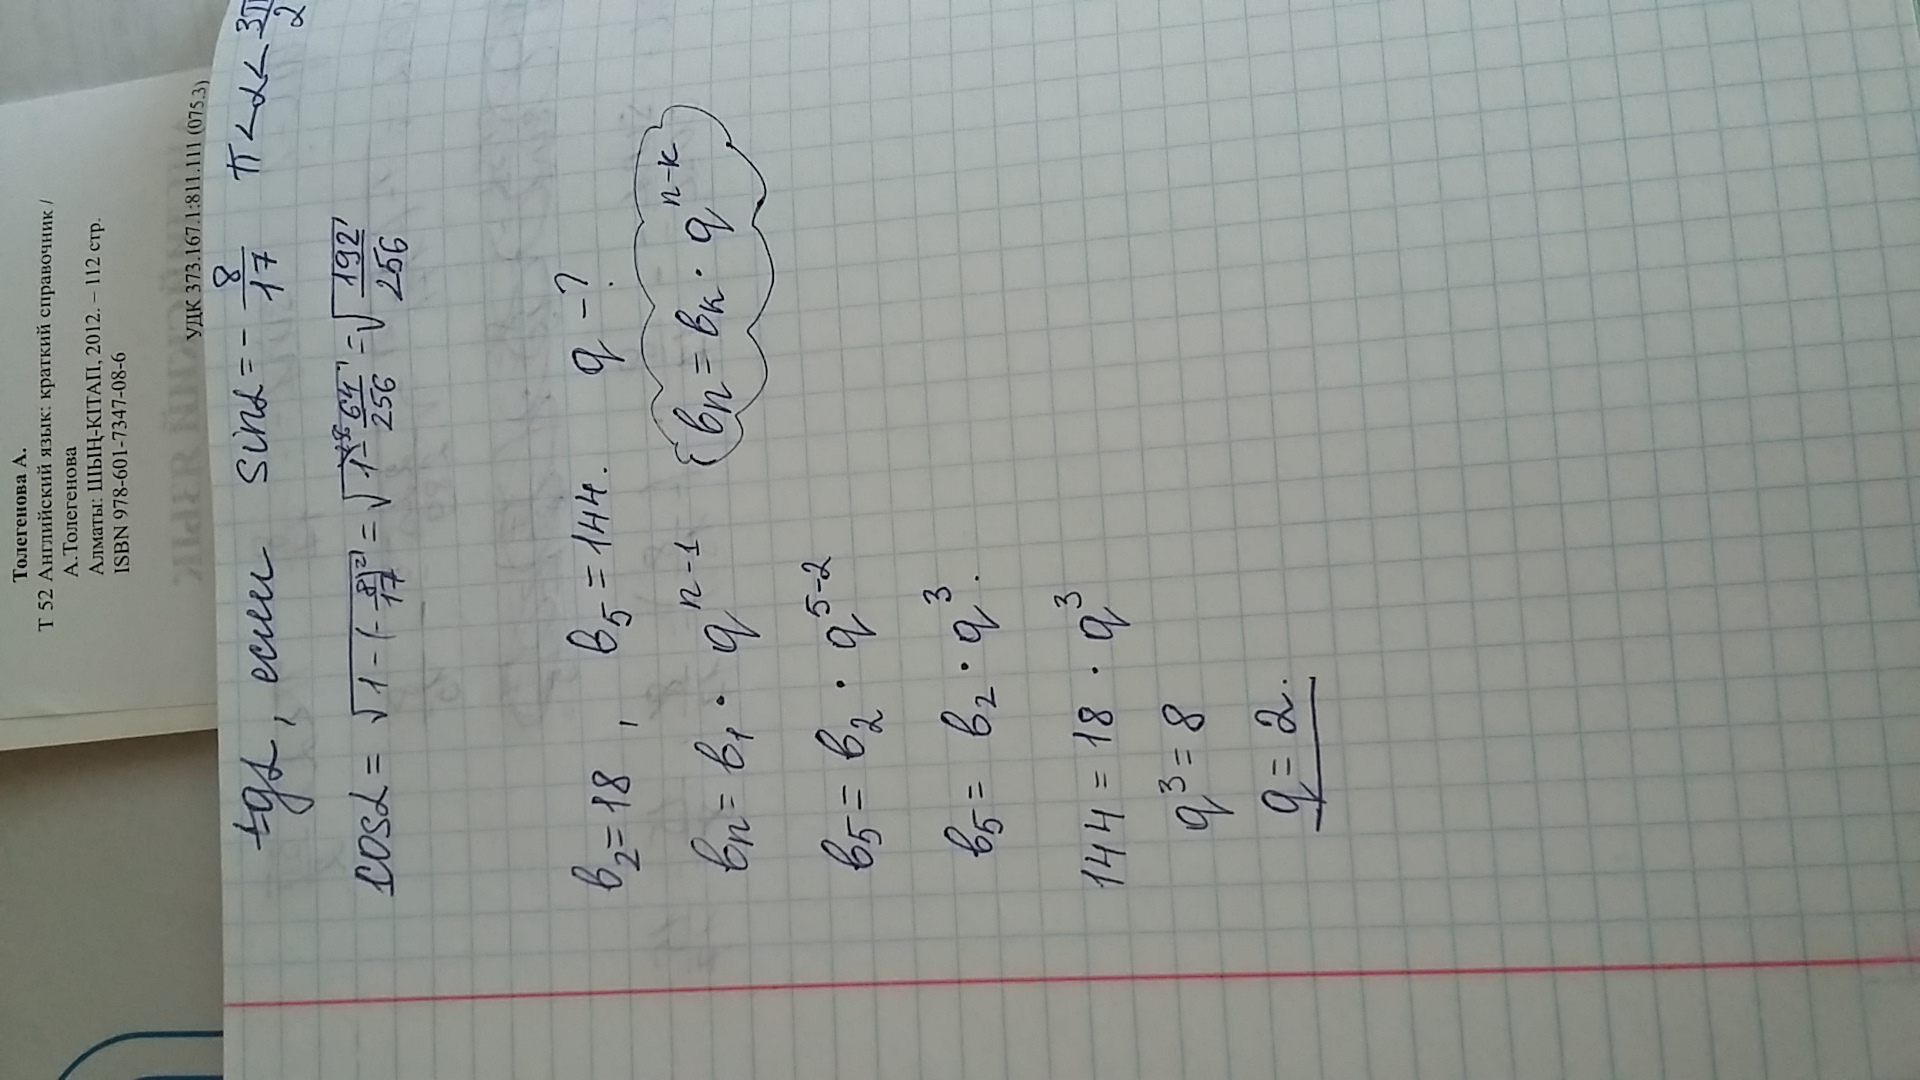 Толегенова А.
Т 52 Английский язык: краткий справочник /
А.Толегенова
Алматы: ШЫҢ-КІТАП, 2012. – 112 стр.
ISBN 978-601-7347-08-6
УДК 373.167.1:811.111 (075.3)
tgα, если sinα = - 8/17 π < α < 3π/2
cosα = √(1 - (-8/17)²) = √(1 - 64/256) = √(192/256)
b₂ = 18 , b₅ = 144. q - ?
bn = b₁ · q^(n-1) bn = bк · q^(n-к)
b₅ = b₂ · q^(5-2)
b₅ = b₂ · q³.
144 = 18 · q³
q³ = 8
q = 2.